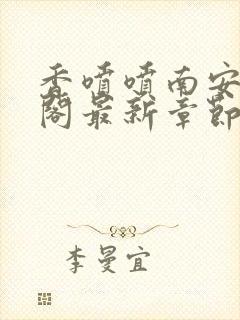 香喷喷南安
阁最新章节
李曼宜